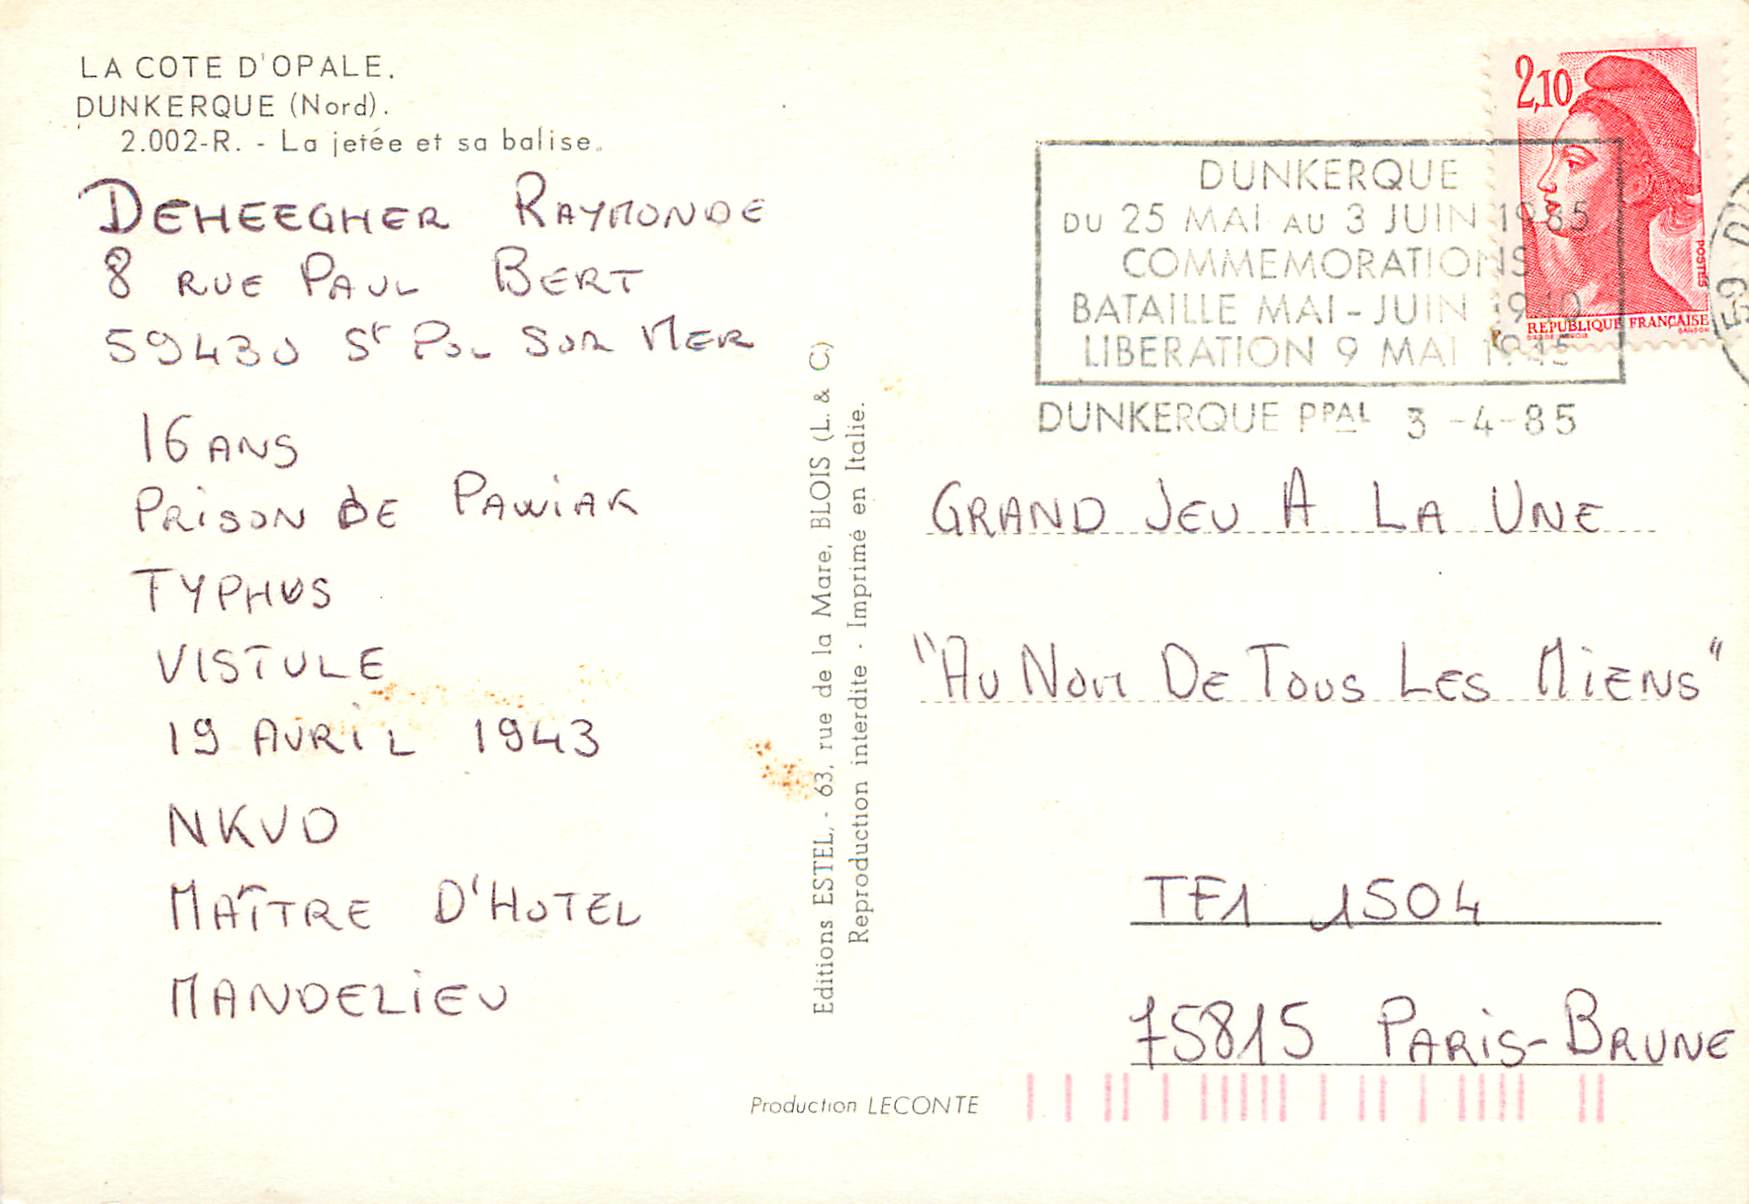 LA COTE D'OPALE.
DUNKERQUE (Nord).
2.002-R. - La jetée et sa balise.
DEHEEGHER RAYMONDE
8 RUE PAUL BERT
59430 St POL SUR MER
16 ANS
PRISON DE PAWIAK
TYPHUS
VISTULE
19 AVRIL 1943
NKVD
MAÎTRE D'HOTEL
MANDELIEU
Editions ESTEL, - 63, rue de la Mare, BLOIS (L. & C)
Reproduction interdite - Imprimé en Italie.
Production LECONTE
2,10
POSTES
REPUBLIQUE FRANÇAISE
DUNKERQUE
DU 25 MAI AU 3 JUIN 1985
COMMEMORATIONS
BATAILLE MAI-JUIN 1940
LIBERATION 9 MAI 1945
DUNKERQUE PPAL 3 -4-85
59 DU
GRAND JEU A LA UNE
"AU NOM DE TOUS LES MIENS"
TF1 1504
75815 PARIS-BRUNE